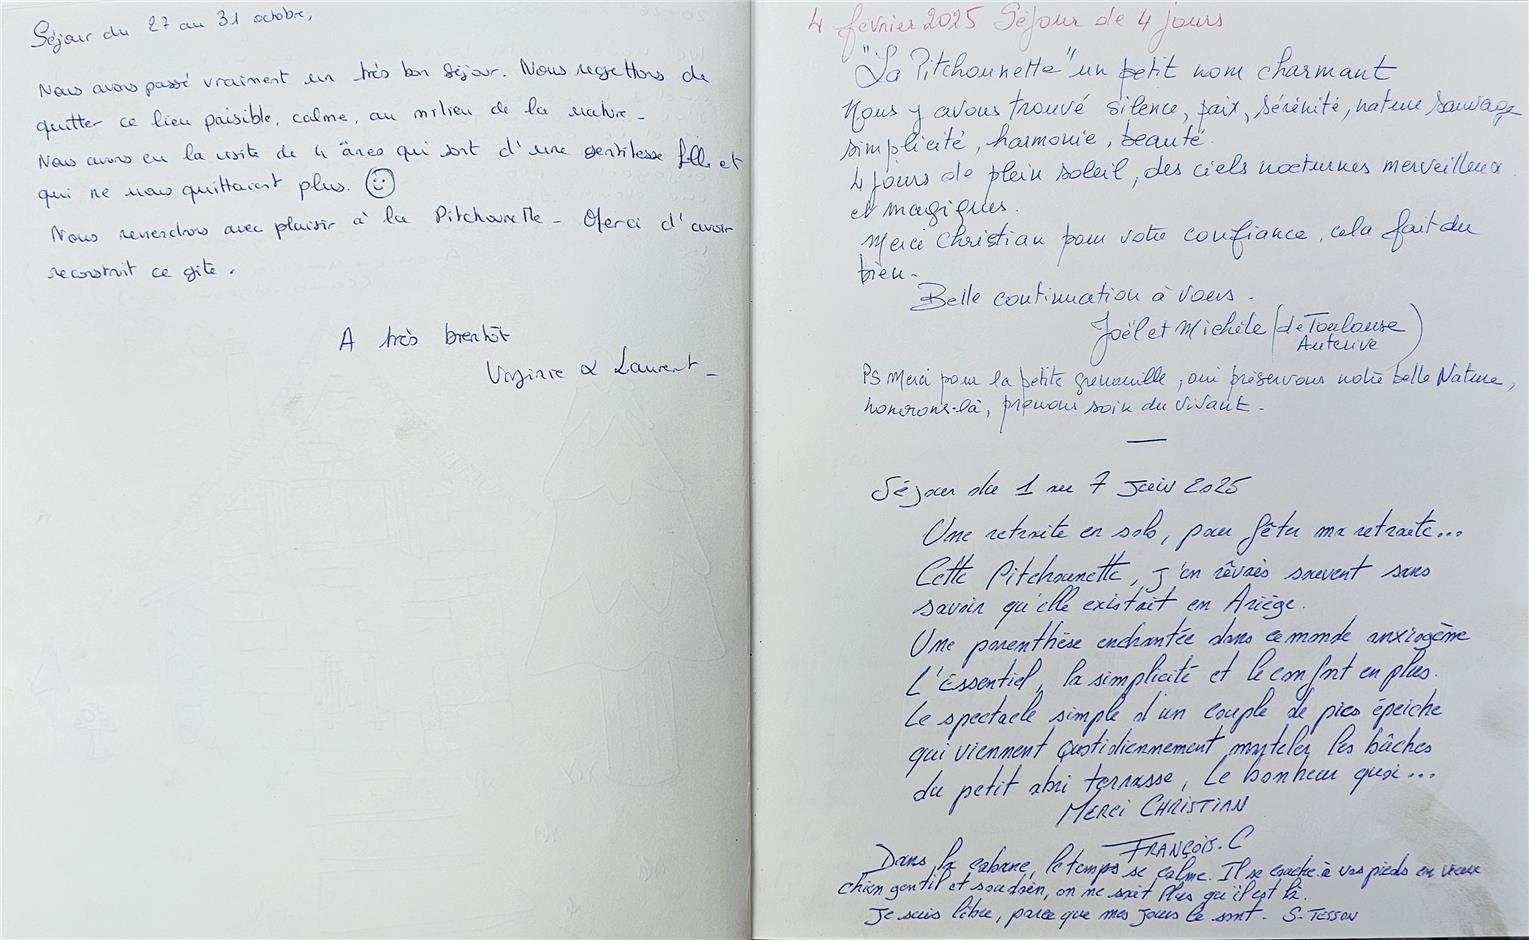 Séjour du 27 au 31 octobre,
Nous avons passé vraiment un très bon séjour. Nous regrettons de
quitter ce lieu paisible, calme, au milieu de la nature -
Nous avons eu la visite de 4 ânes qui sont d'une gentillesse folle et
qui ne nous quittaient plus. ☺
Nous reviendrons avec plaisir à la Pitchounette - Merci d'avoir
reconstruit ce gite.
A très bientôt
Virginie & Laurent -
4 février 2025 Séjour de 4 jours
"La Pitchounette" un petit nom charmant
Nous y avons trouvé silence, paix, sérénité, nature sauvage
simplicité, harmonie, beauté.
4 jours de plein soleil, des ciels nocturnes merveilleux
et magiques.
Merci Christian pour votre confiance, cela fait du
bien -
Belle continuation à vous.
Joël et Michèle (de Toulouse
Auterive)
PS Merci pour la petite grenouille, oui préservons notre belle Nature,
honorons-là, prenons soin du vivant -
Séjour du 1 au 7 Juin 2025
Une retraite en solo, pour fêter ma retraite...
Cette Pitchounette, j'en rêvais souvent sans
savoir qu'elle existait en Ariège.
Une parenthèse enchantée dans ce monde anxiogène
L'Essentiel, la simplicité et le confort en plus.
Le spectacle simple d'un couple de pics épeiche
qui viennent quotidiennement marteler les bâches
du petit abri terrasse, Le bonheur quoi...
MERCI CHRISTIAN
FRANÇOIS. C
Dans la cabane, le temps se calme. Il se couche à vos pieds en vieux
chien gentil et soudain, on ne sait plus qu'il est là.
Je suis libre, parce que mes jours le sont. S. TESSON